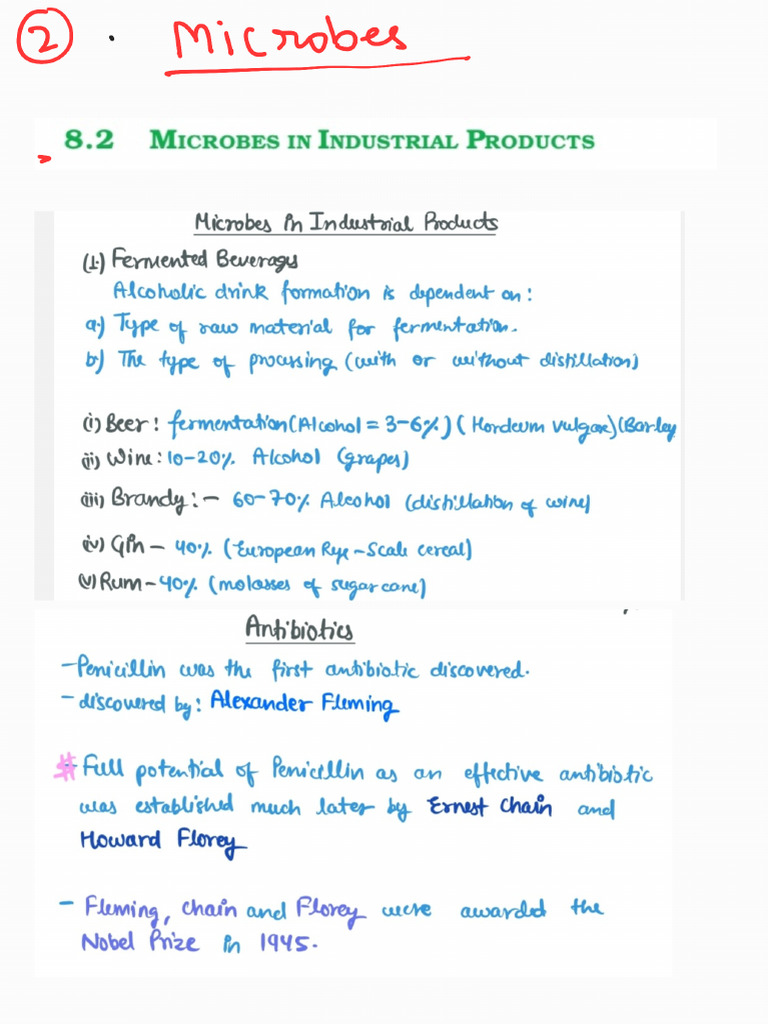 ② . Microbes
8.2 MICROBES IN INDUSTRIAL PRODUCTS
Microbes in Industrial Products
(1.) Fermented Beverages
Alcoholic drink formation is dependent on:
a.) Type of raw material for fermentation.
b) The type of processing (with or without distillation)
(i) Beer: fermentation (Alcohol = 3-6%) (Hordeum vulgare) (Barley
(ii) Wine: 10-20% Alcohol (grapes)
(iii) Brandy: - 60-70% Alcohol (distillation of wine)
(iv) Gin - 40% (European Rye-Scale cereal)
(v) Rum - 40% (molasses of sugarcane)
Antibiotics
- Penicillin was the first antibiotic discovered.
- discovered by: Alexander Fleming
# Full potential of Penicillin as an effective antibiotic
was established much later by Ernest Chain and
Howard Florey
- Fleming, chain and Florey were awarded the
Nobel Prize in 1945.